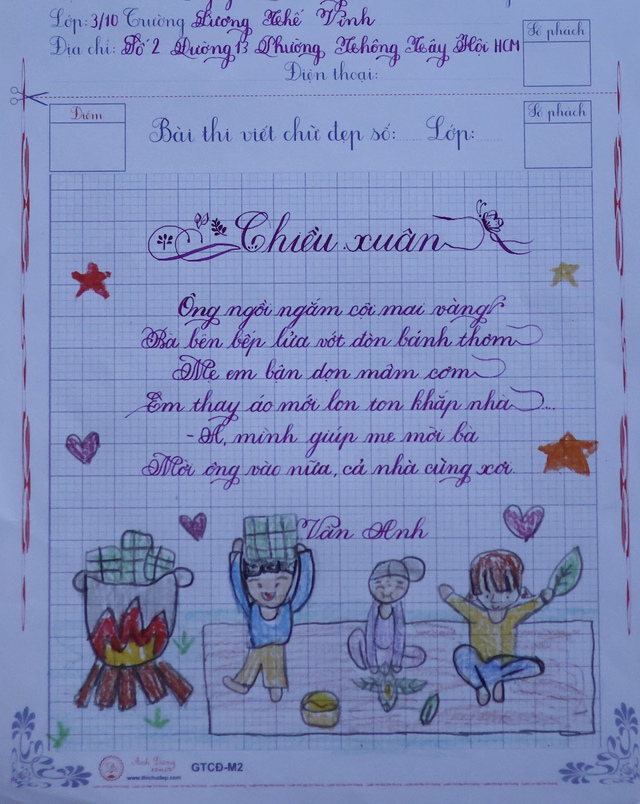 Lớp: 3/10 Trường Lương Thế Vinh
Địa chỉ: Số 2 Đường 13 Phường Thông Tây Hội HCM
Điện thoại:
Số phách
Điểm
Bài thi viết chữ đẹp số: Lớp:
Số phách
Chiều xuân
Ông ngồi ngắm cội mai vàng
Bà bên bếp lửa vớt đòn bánh thơm
Mẹ em bận dọn mâm cơm
Em thay áo mới lon ton khắp nhà...
- A, mình giúp mẹ mời bà
Mời ông vào nữa, cả nhà cùng xơi.
Vân Anh
Ánh Dương
GTCĐ-M2